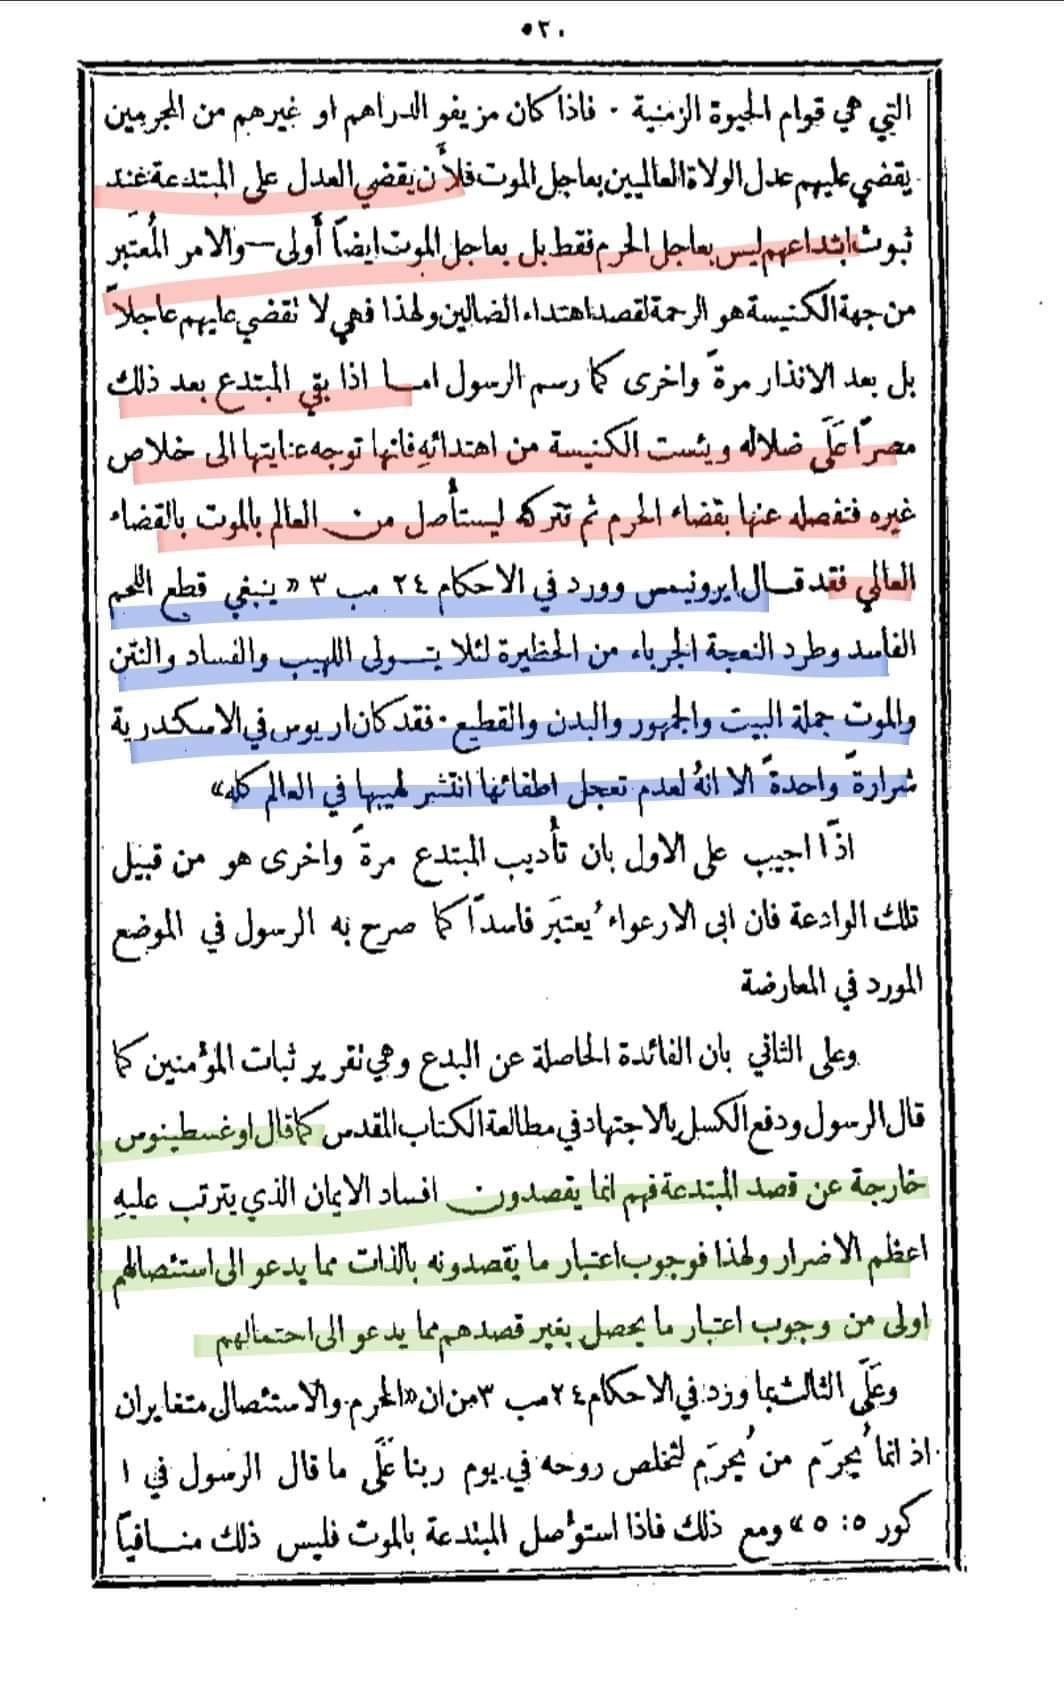 ٥٢٠
التي هي قوام الحيوة الزمنية · فاذا كان مزيفو الدراهم او غيرهم من المجرمين
يقضي عليهم عدل الولاة العالميين بعاجل الموت فلأن يقضي العدل على المبتدعة عند
ثبوت ابتداعهم ليس بعاجل الحرم فقط بل بعاجل الموت ايضاً أولى — والامر المُعتَبر
من جهة الكنيسة هو الرحمة لقصد اهتداء الضالين ولهذا فهي لا تقضي عليهم عاجلاً
بل بعد الانذار مرةً واخرى كما رسم الرسول امـا اذا بقي المبتدع بعد ذلك
مصرّاً عَلَى ضلاله ويئست الكنيسة من اهتدائهِ فانها توجه عنايتها الى خلاص
غيره فتفصله عنها بقضاء الحرم ثم تتركه ليستأصل من العالم بالموت بالقضاء
العالي فقد قـال ايرونيمس وورد في الاحكام ٢٤ مب ٣ « ينبغي قطع اللحم
الفاسد وطرد النعجة الجرباء من الحظيرة لئلا يتـولى اللهيب والفساد والنتن
والموت جملة البيت والجمهور والبدن والقطيع · فقد كان اريوس في الاسكندرية
شرارةً واحدةً الا انهُ لعدم تعجل اطفائها انتشر لهيبها في العالم كله»
اذًا اجيب على الاول بان تأديب المبتدع مرةً واخرى هو من قبيل
تلك الوادعة فان ابى الارعواء يُعتبَر فاسدًا كما صرح به الرسول في الموضع
المورد في المعارضة
وعلى الثاني بان الفائدة الحاصلة عن البدع وهي تقرير ثبات المؤمنين كما
قال الرسول ودفع الكسل بالاجتهاد في مطالعة الكتاب المقدس كما قال اوغسطينوس
خارجة عن قصد المبتدعة فهم انما يقصدون افساد الايمان الذي يترتب عليهِ
اعظم الاضرار ولهذا فوجوب اعتبار ما يقصدونه بالذات مما يدعو الى استئصالهم
اولى من وجوب اعتبار ما يحصل بغير قصدهم مما يدعو الى احتمالهم
وعَلَى الثالث بما ورد في الاحكام ٢٤ مب ٣ من ان «الحرم والاستئصال متغايران
اذ انما يُحرَم من يُحرَم لتخلص روحه في يوم ربنا عَلَى ما قال الرسول في ١
كور ٥ : ٥ » ومع ذلك فاذا استؤصل المبتدعة بالموت فليس ذلك منـافياً